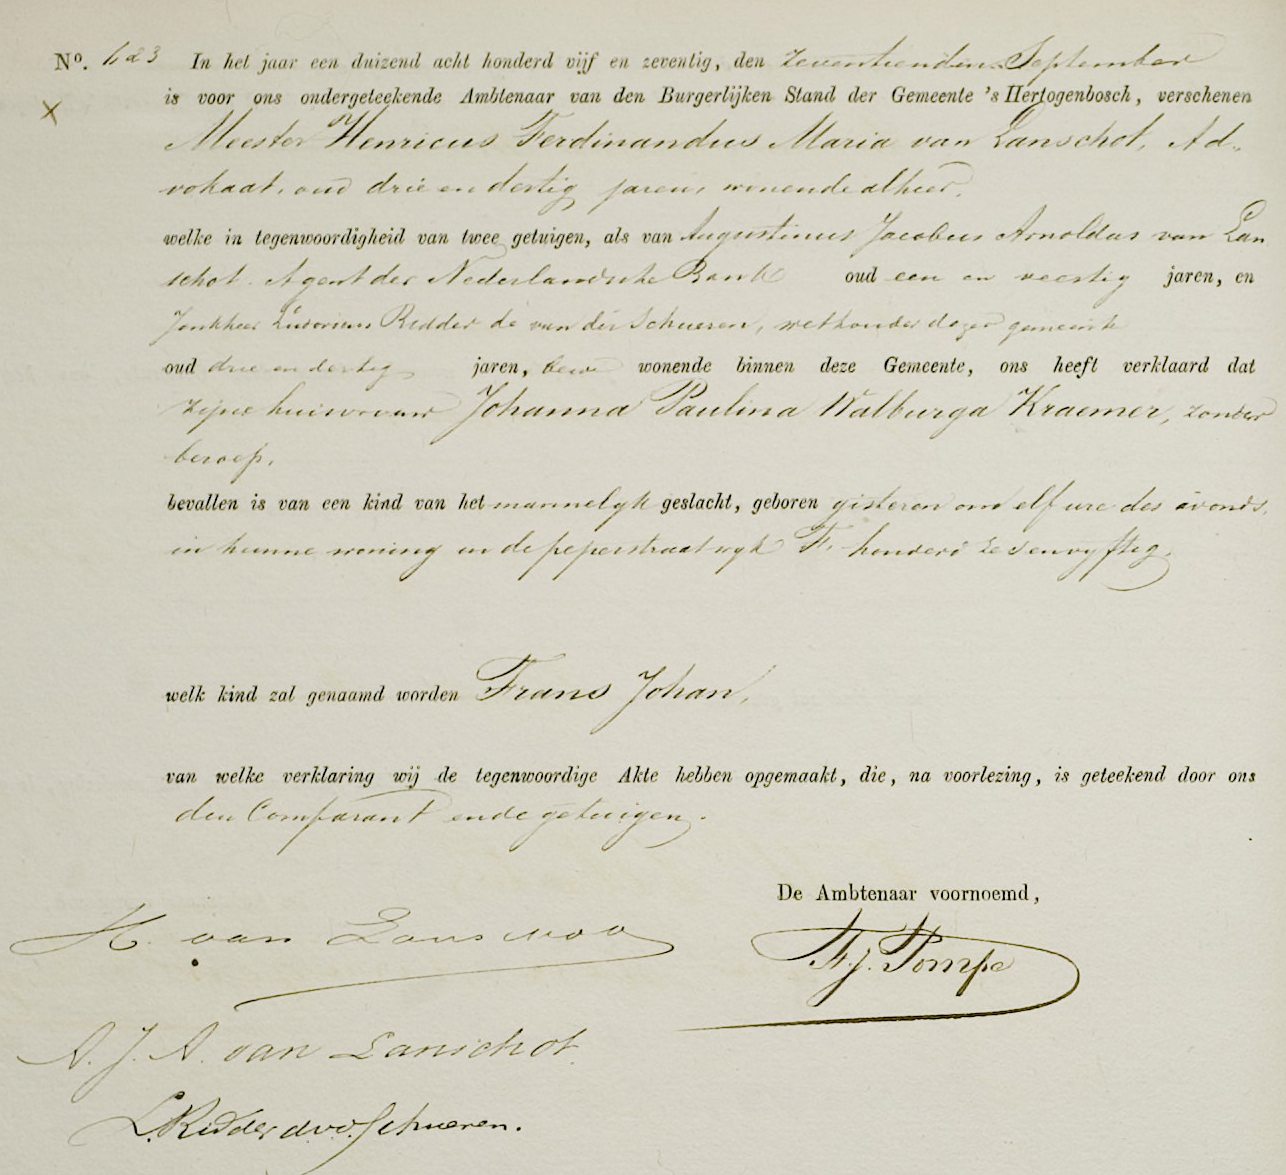 Nº. 623 In het jaar een duizend acht honderd vijf en zeventig, den zeventienden September
is voor ons ondergeteekende Ambtenaar van den Burgerlijken Stand der Gemeente 's Hertogenbosch, verschenen
Meester Henricus Ferdinandus Maria van Lanschot, Ad-
vokaat, oud drie en dertig jaren, wonende alhier,
welke in tegenwoordigheid van twee getuigen, als van Augustinus Jacobus Arnoldus van Lan
schot. Agent der Nederlandsche Bank oud een en veertig jaren, en
Jonkheer Ludovicus Ridder de van der Schueren, wethouder dezer gemeente
oud drie en dertig jaren, beide wonende binnen deze Gemeente, ons heeft verklaard dat
zijne huisvrouw Johanna Paulina Walburga Kraemer, zonder
beroep,
bevallen is van een kind van het mannelyk geslacht, geboren gisteren om elf ure des avonds,
in hunne woning in de peperstraat wyk F. honderd zes en vyftig,
welk kind zal genaamd worden Frans Johan,
van welke verklaring wij de tegenwoordige Akte hebben opgemaakt, die, na voorlezing, is geteekend door ons
den Comparant en de getuigen.
De Ambtenaar voornoemd,
H. van Lanschot
F. J. Pompe
A. J. A. van Lanschot
L. Ridder d.v.d. Schueren.